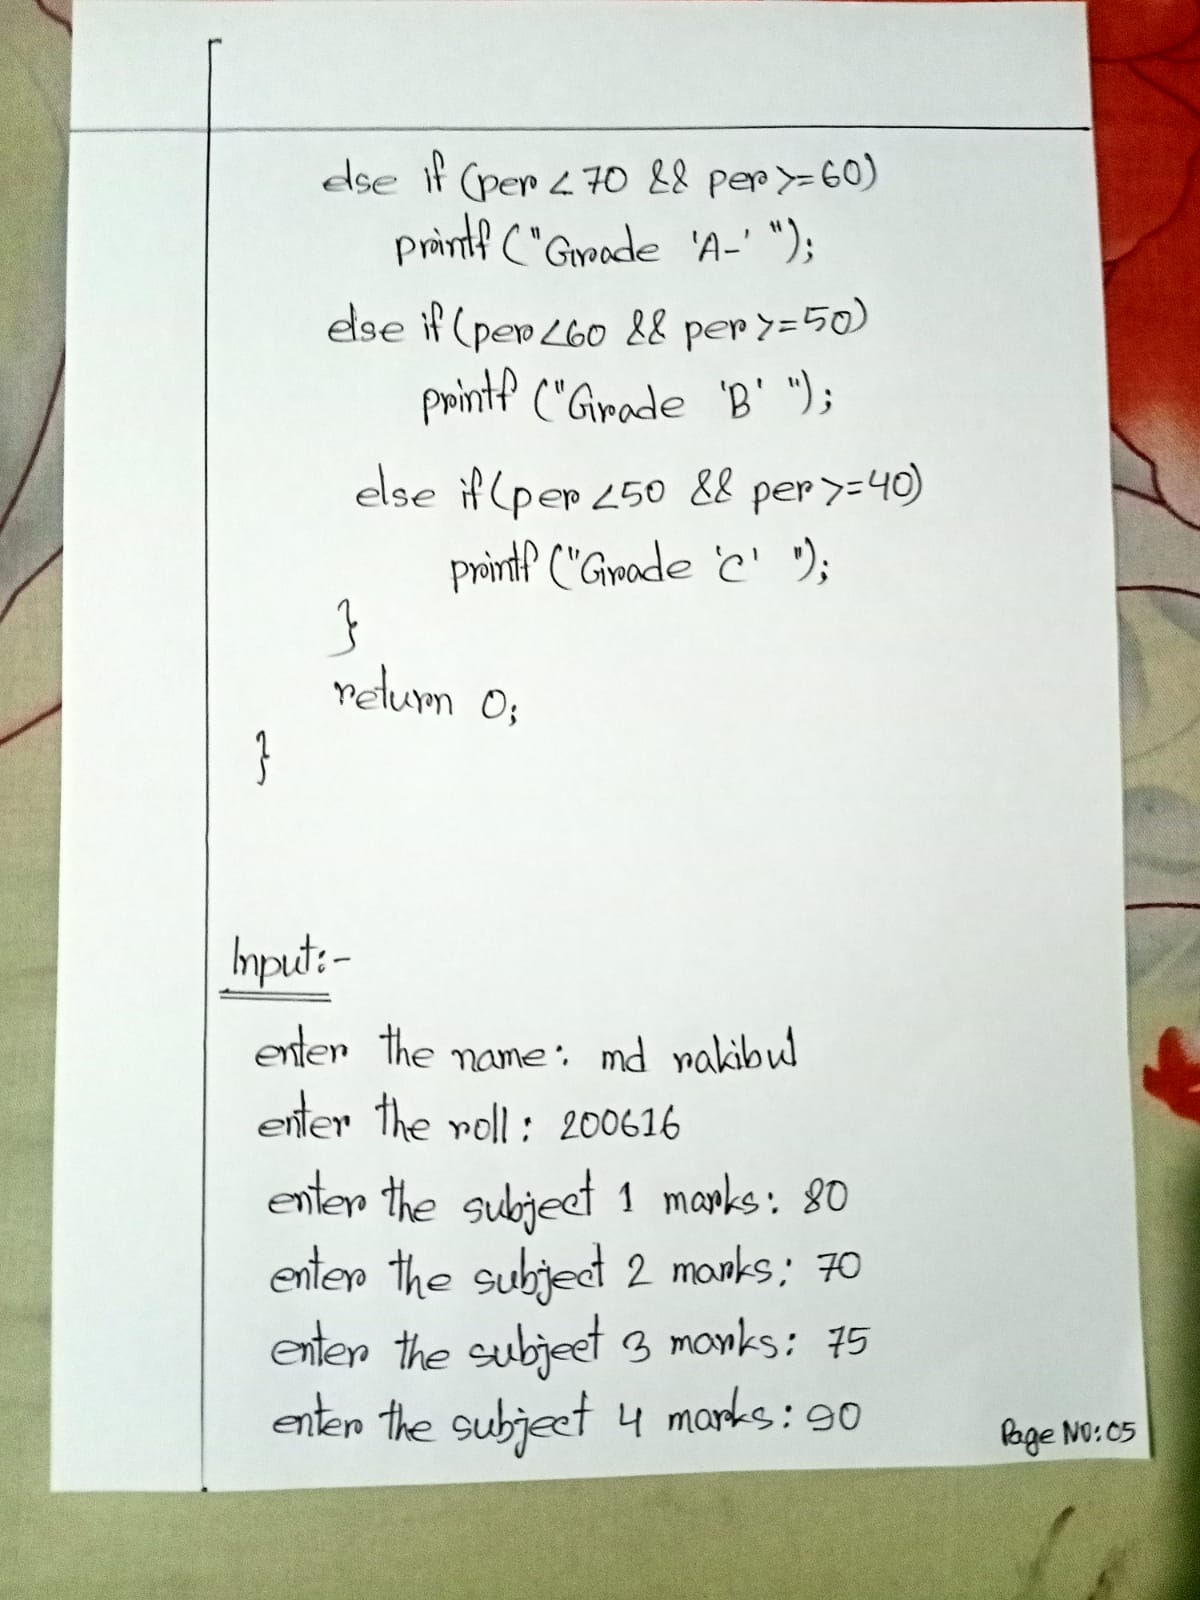 else if (per < 70 && per >= 60)
printf ("Grade 'A-' ");
else if (per < 60 && per >= 50)
printf ("Grade 'B' ");
else if (per < 50 && per >= 40)
printf ("Grade 'C' ");
}
return 0;
}
Input:-
enter the name: md rakibul
enter the roll: 200616
enter the subject 1 marks: 80
enter the subject 2 marks: 70
enter the subject 3 marks: 75
enter the subject 4 marks: 90
Page No: 05